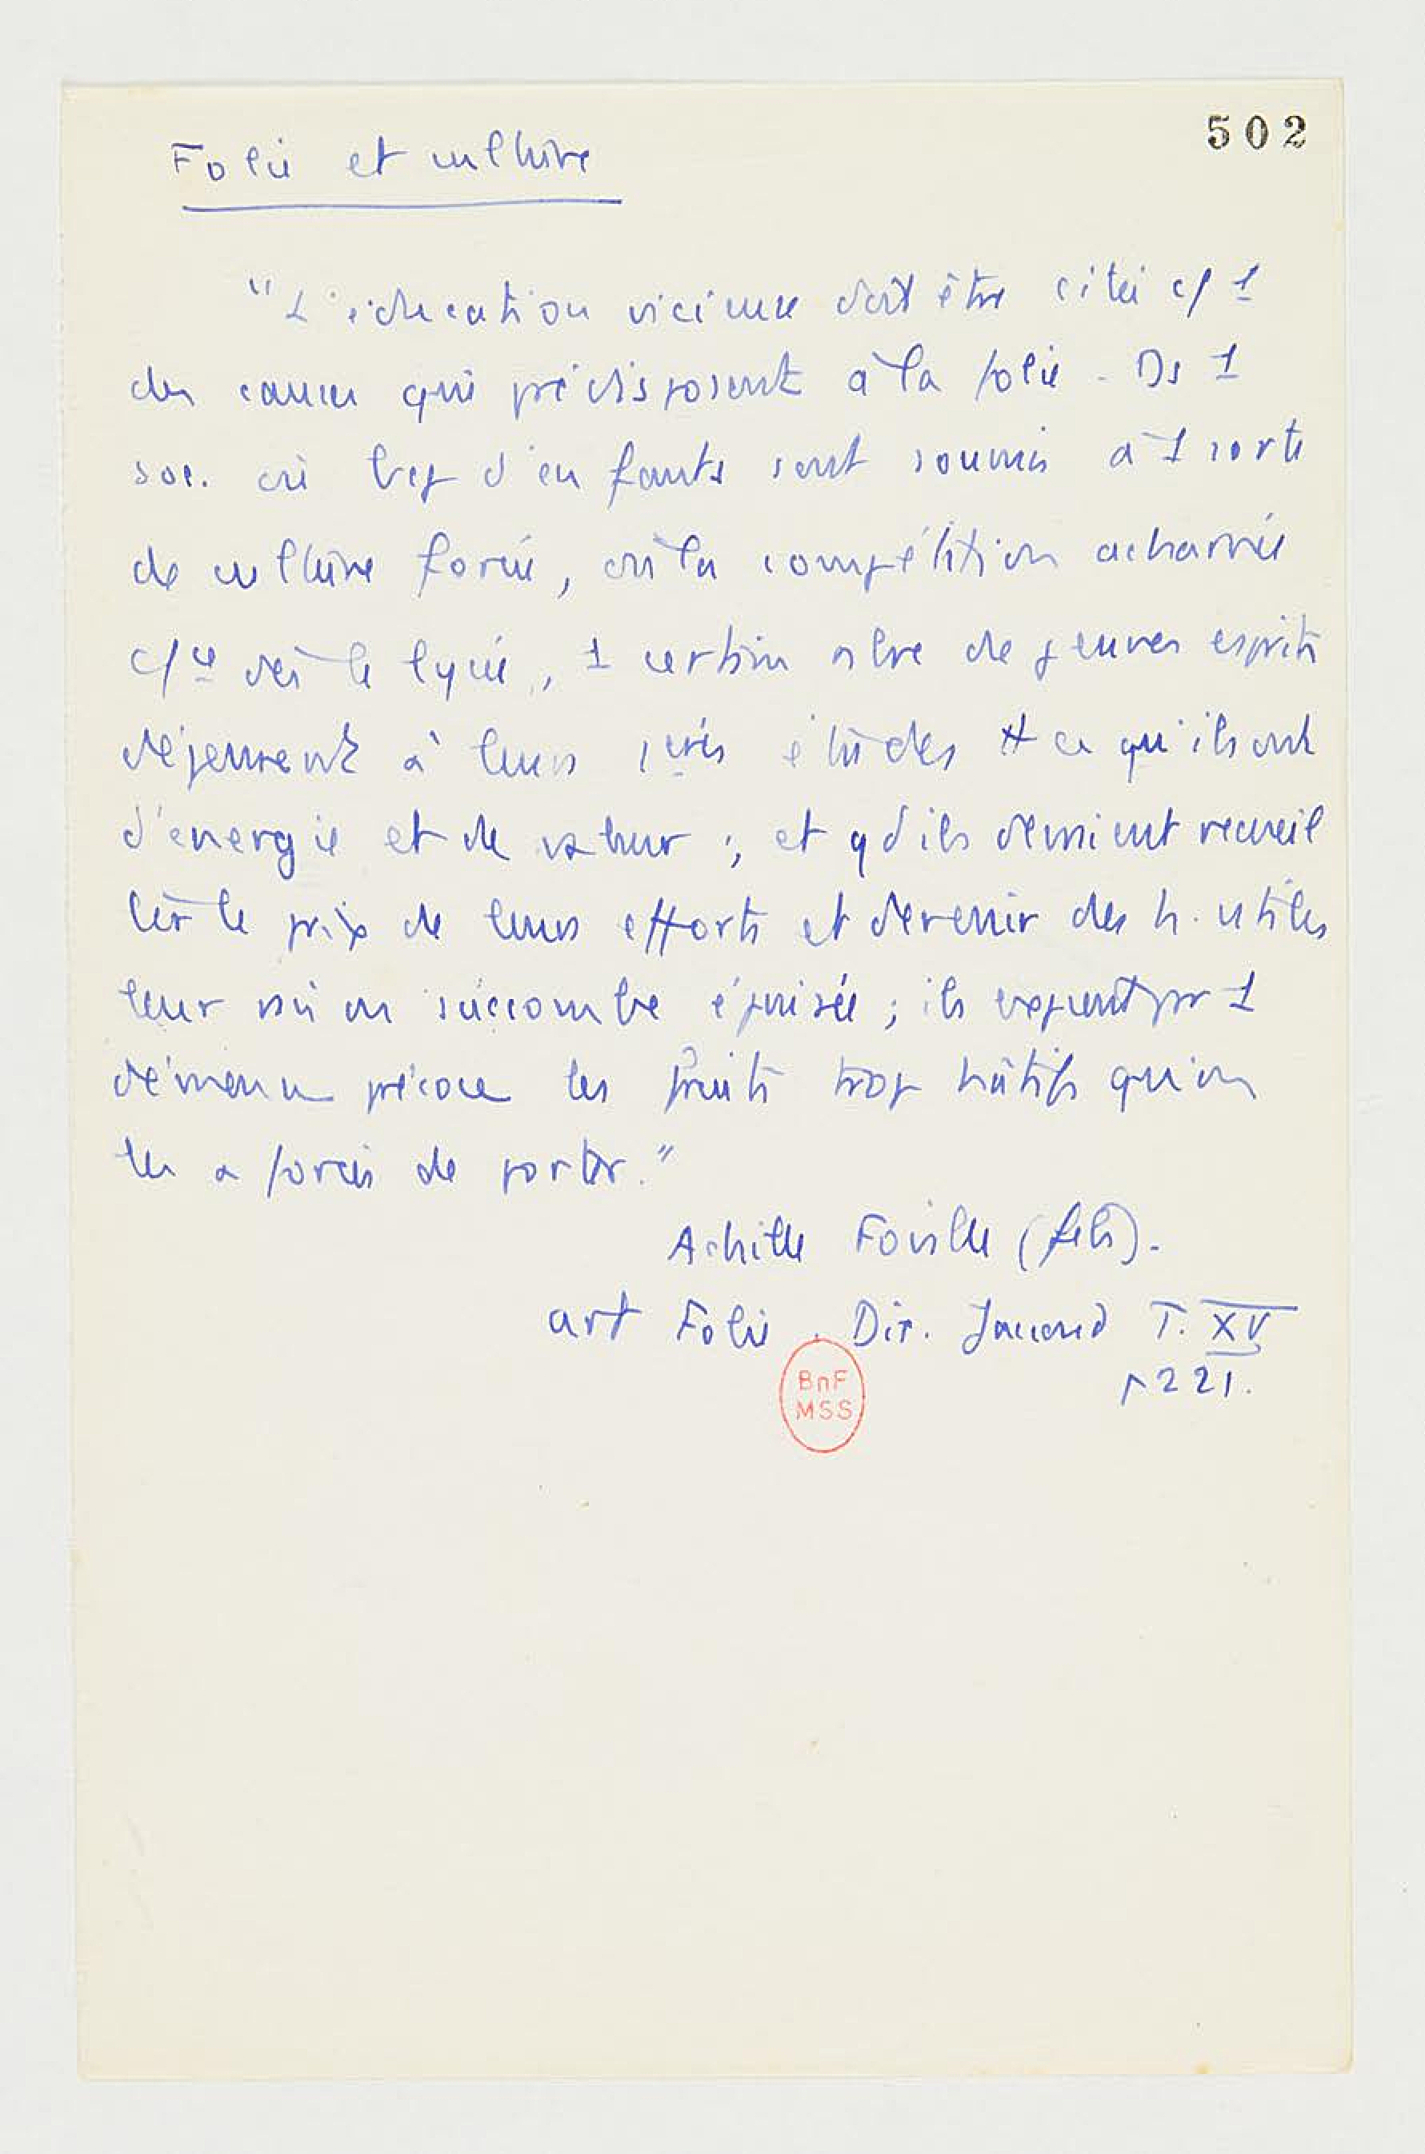 502
Folie et culture
"L'éducation vicieuse doit être citée c/ 1
des causes qui prédisposent à la folie. Ds 1
soc. où bcp d'enfants sont soumis à 1 sorte
de culture forcée, où la compétition acharnée
c/ce dès le lycée, 1 certain nbre de jeunes esprits
dépensent à leurs 1ères études tt ce qu'ils ont
d'energie et de valeur ; et qd ils devraient recueil
lir le prix de leurs efforts et devenir des h. utiles
leur raison succombe épuisée ; ils expient par 1
démence précoce les fruits trop hâtifs qu'on
les a forcés de porter."
Achille Foville (fils).
art Folie. Dic. Jaccoud T. XV
p 221.
BnF
MSS